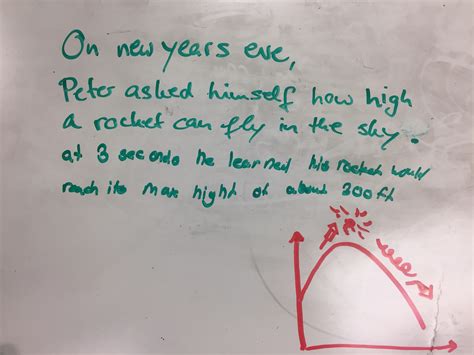 On new years eve,
Peter asked himself how high
a rocket can fly in the sky.
at 3 seconds he learned his rocket would
reach its max hight of about 200ft